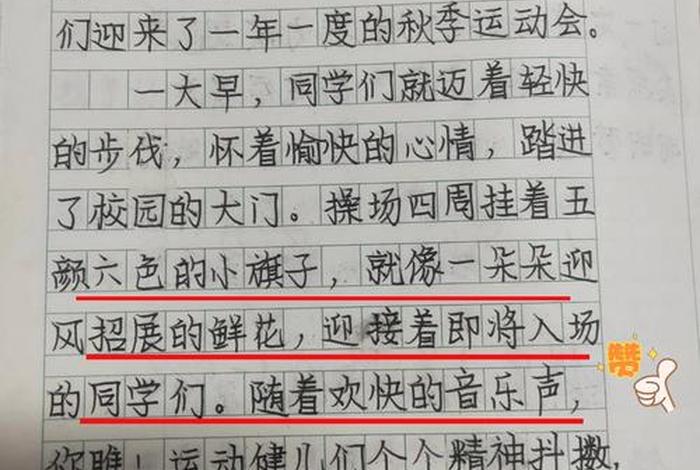 们迎来了一年一度的秋季运动会。
一大早，同学们就迈着轻快
的步伐，怀着愉快的心情，踏进
了校园的大门。操场四周挂着五
颜六色的小旗子，就像一朵朵迎
风招展的鲜花，迎接着即将入场
的同学们。随着欢快的音乐声，
你瞧！运动健儿们个个精神抖擞，
赞